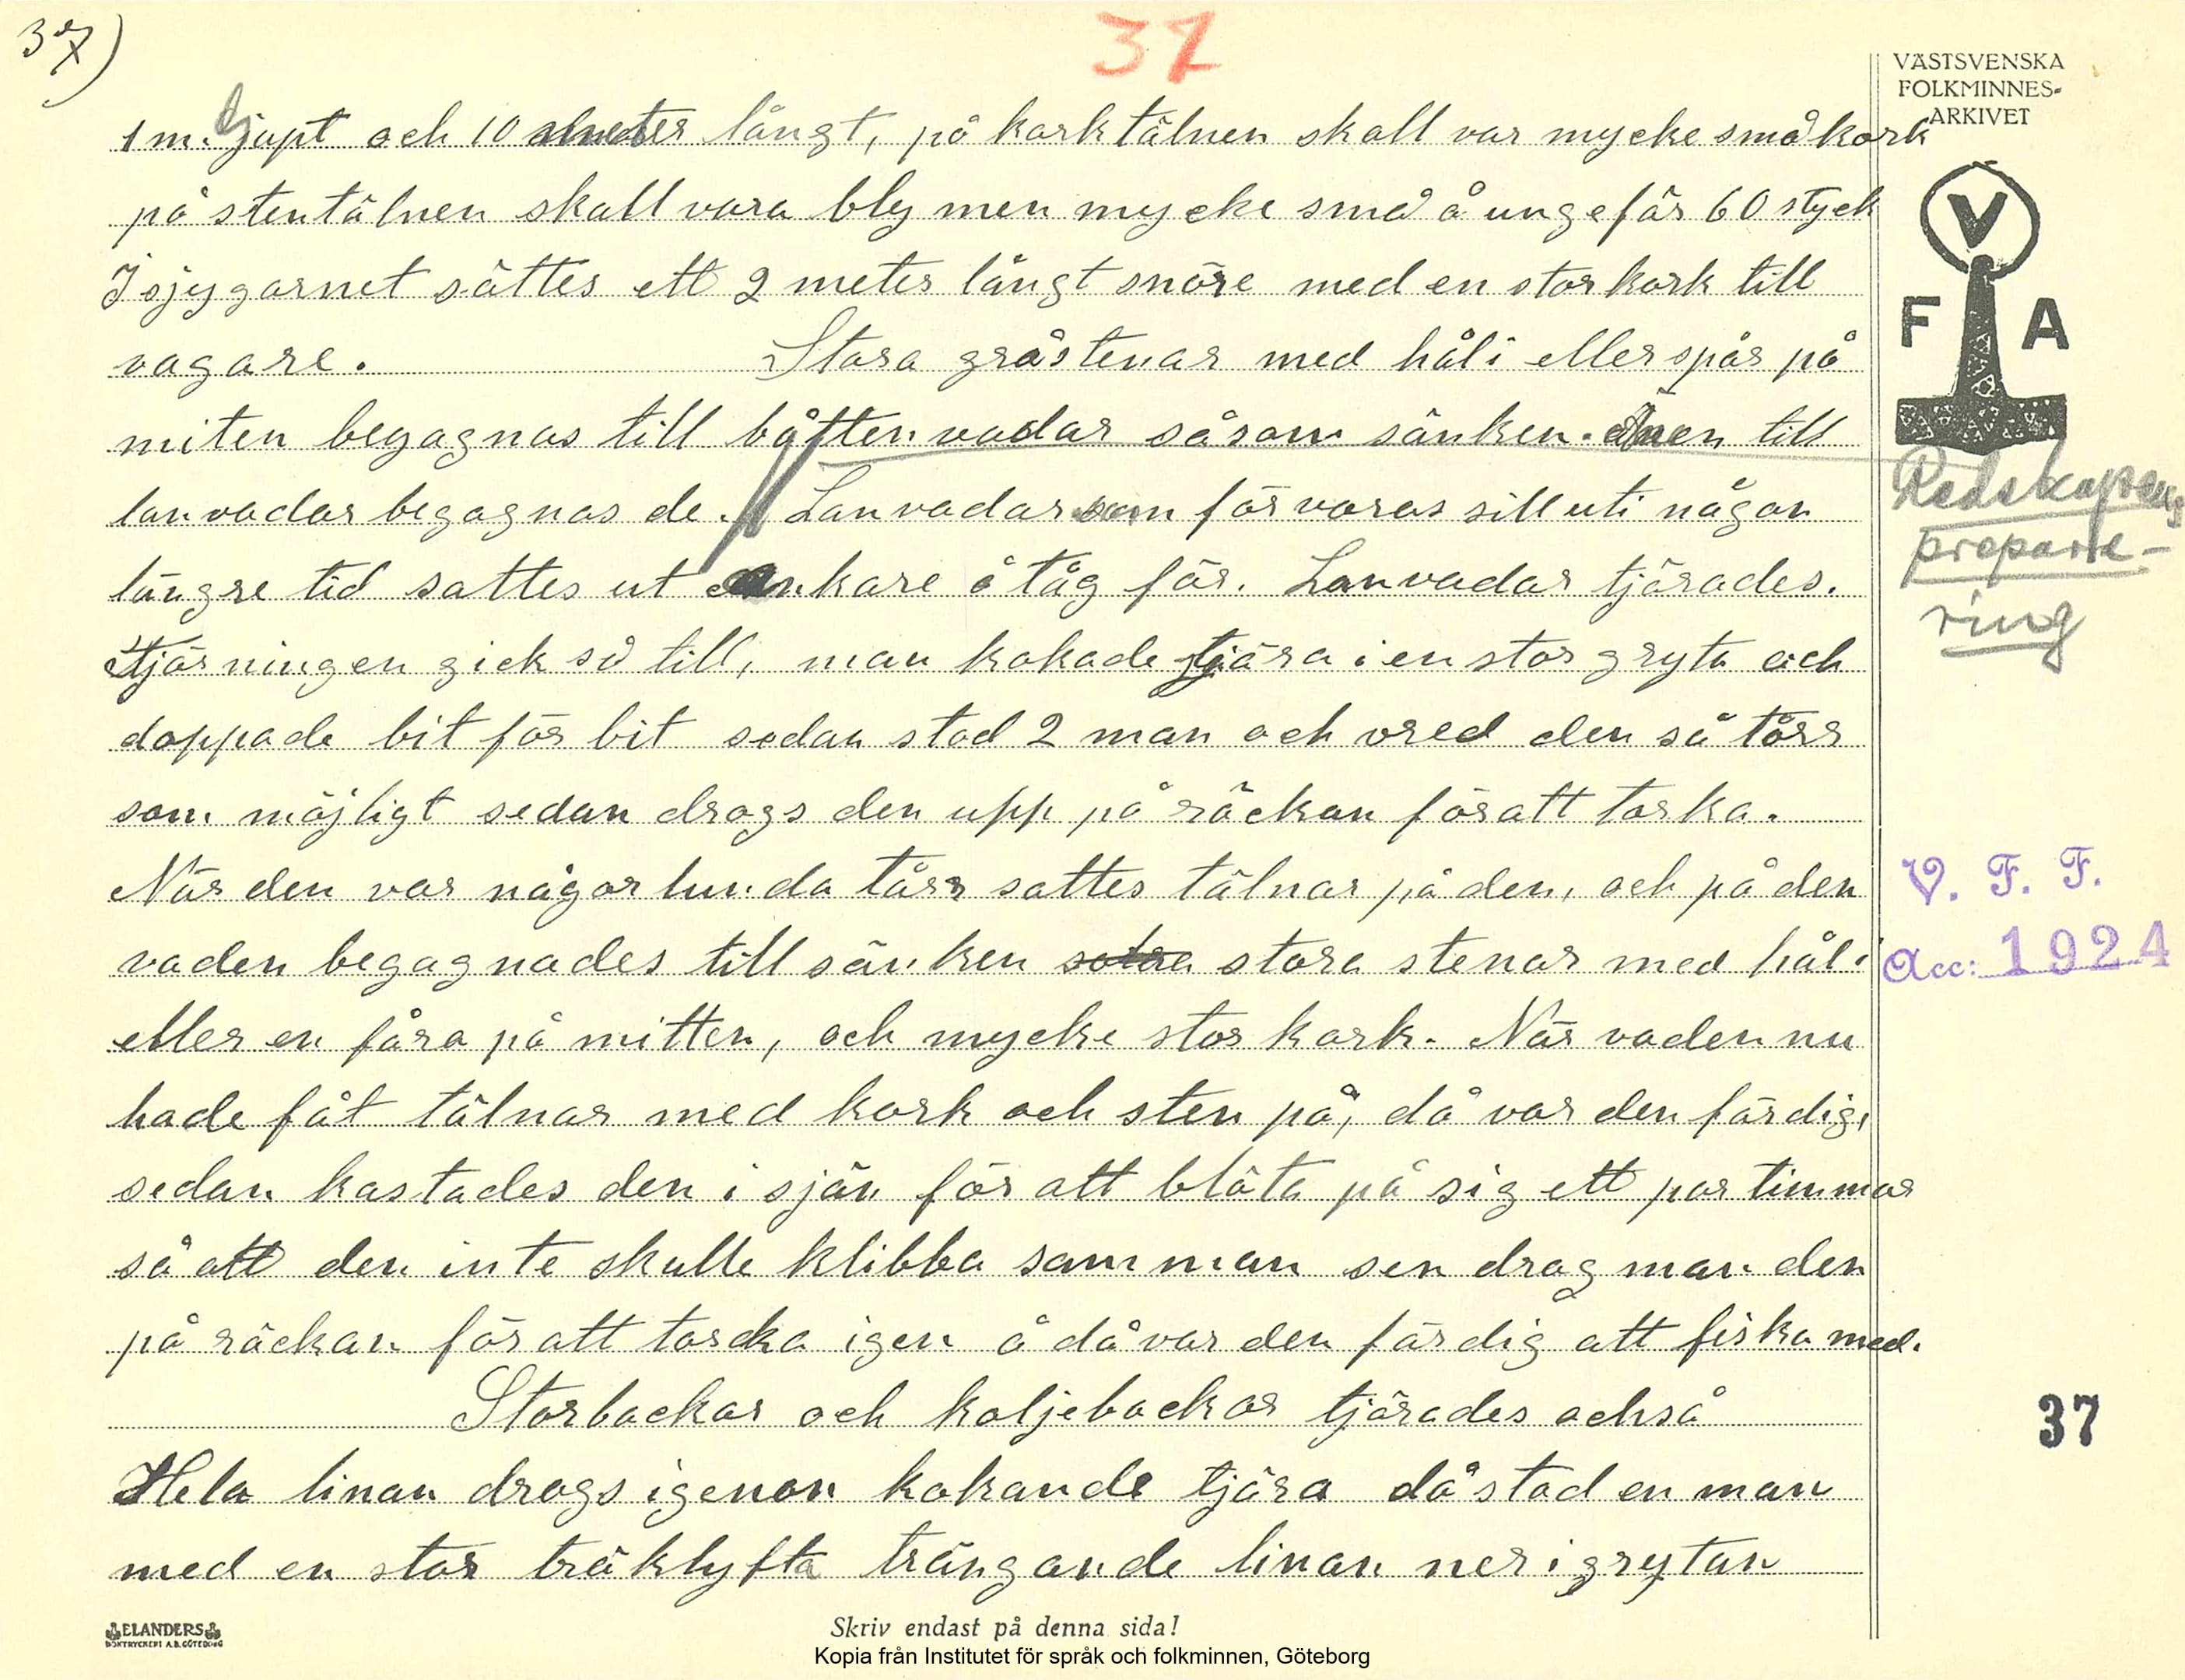 37)
37
VÄSTSVENSKA
FOLKMINNES-
ARKIVET
1 m. djupt och 10 meter långt, på korktälnen skall var mycke små kork
på stentälnen skall vara bly men mycke små å ungefär 60 styck
I sjygarnet sättes ett 2 meter långt snöre med en stor kork till
vagare. Stora gråstenar med hål i eller spår på
miten begagnas till båtten vadar såsom sänken. även till
lanvadar begagnas de. Lanvadar som förvaras sill uti någon
längre tid sattes ut ankare å tåg för. Lanvadar tjärades.
Tjärningen gick så till, man kokade tjära i en stor gryta och
doppade bit för bit sedan stod 2 man och vred den så tårr
som möjligt sedan drogs den upp på räckan för att torka.
När den var någorlunda tårr sattes tälnar på den, och på den
vaden begagnades till sänken stora stenar med hål i
eller en fåra på mitten, och mycke stor kork. När vaden nu
hade fåt tälnar med kork och sten på, då var den färdig,
sedan kastades den i sjön för att blöta på sig ett par timmar
så att den inte skulle klibba samman sen drog man den
på räckan för att torcka igen å då var den färdig att fiska med.
Storbackar och koljebackor tjärades också
Hela linan drogs igenon kokande tjära då stod en man
med en stor träklyfta trängande linan ner i grytan
V
F A
Redskapens
prepare-
ring
V. F. F.
Acc: 1924
37
ELANDERS
BOKTRYCKERI A.B. GÖTEBORG
Skriv endast på denna sida!
Kopia från Institutet för språk och folkminnen, Göteborg